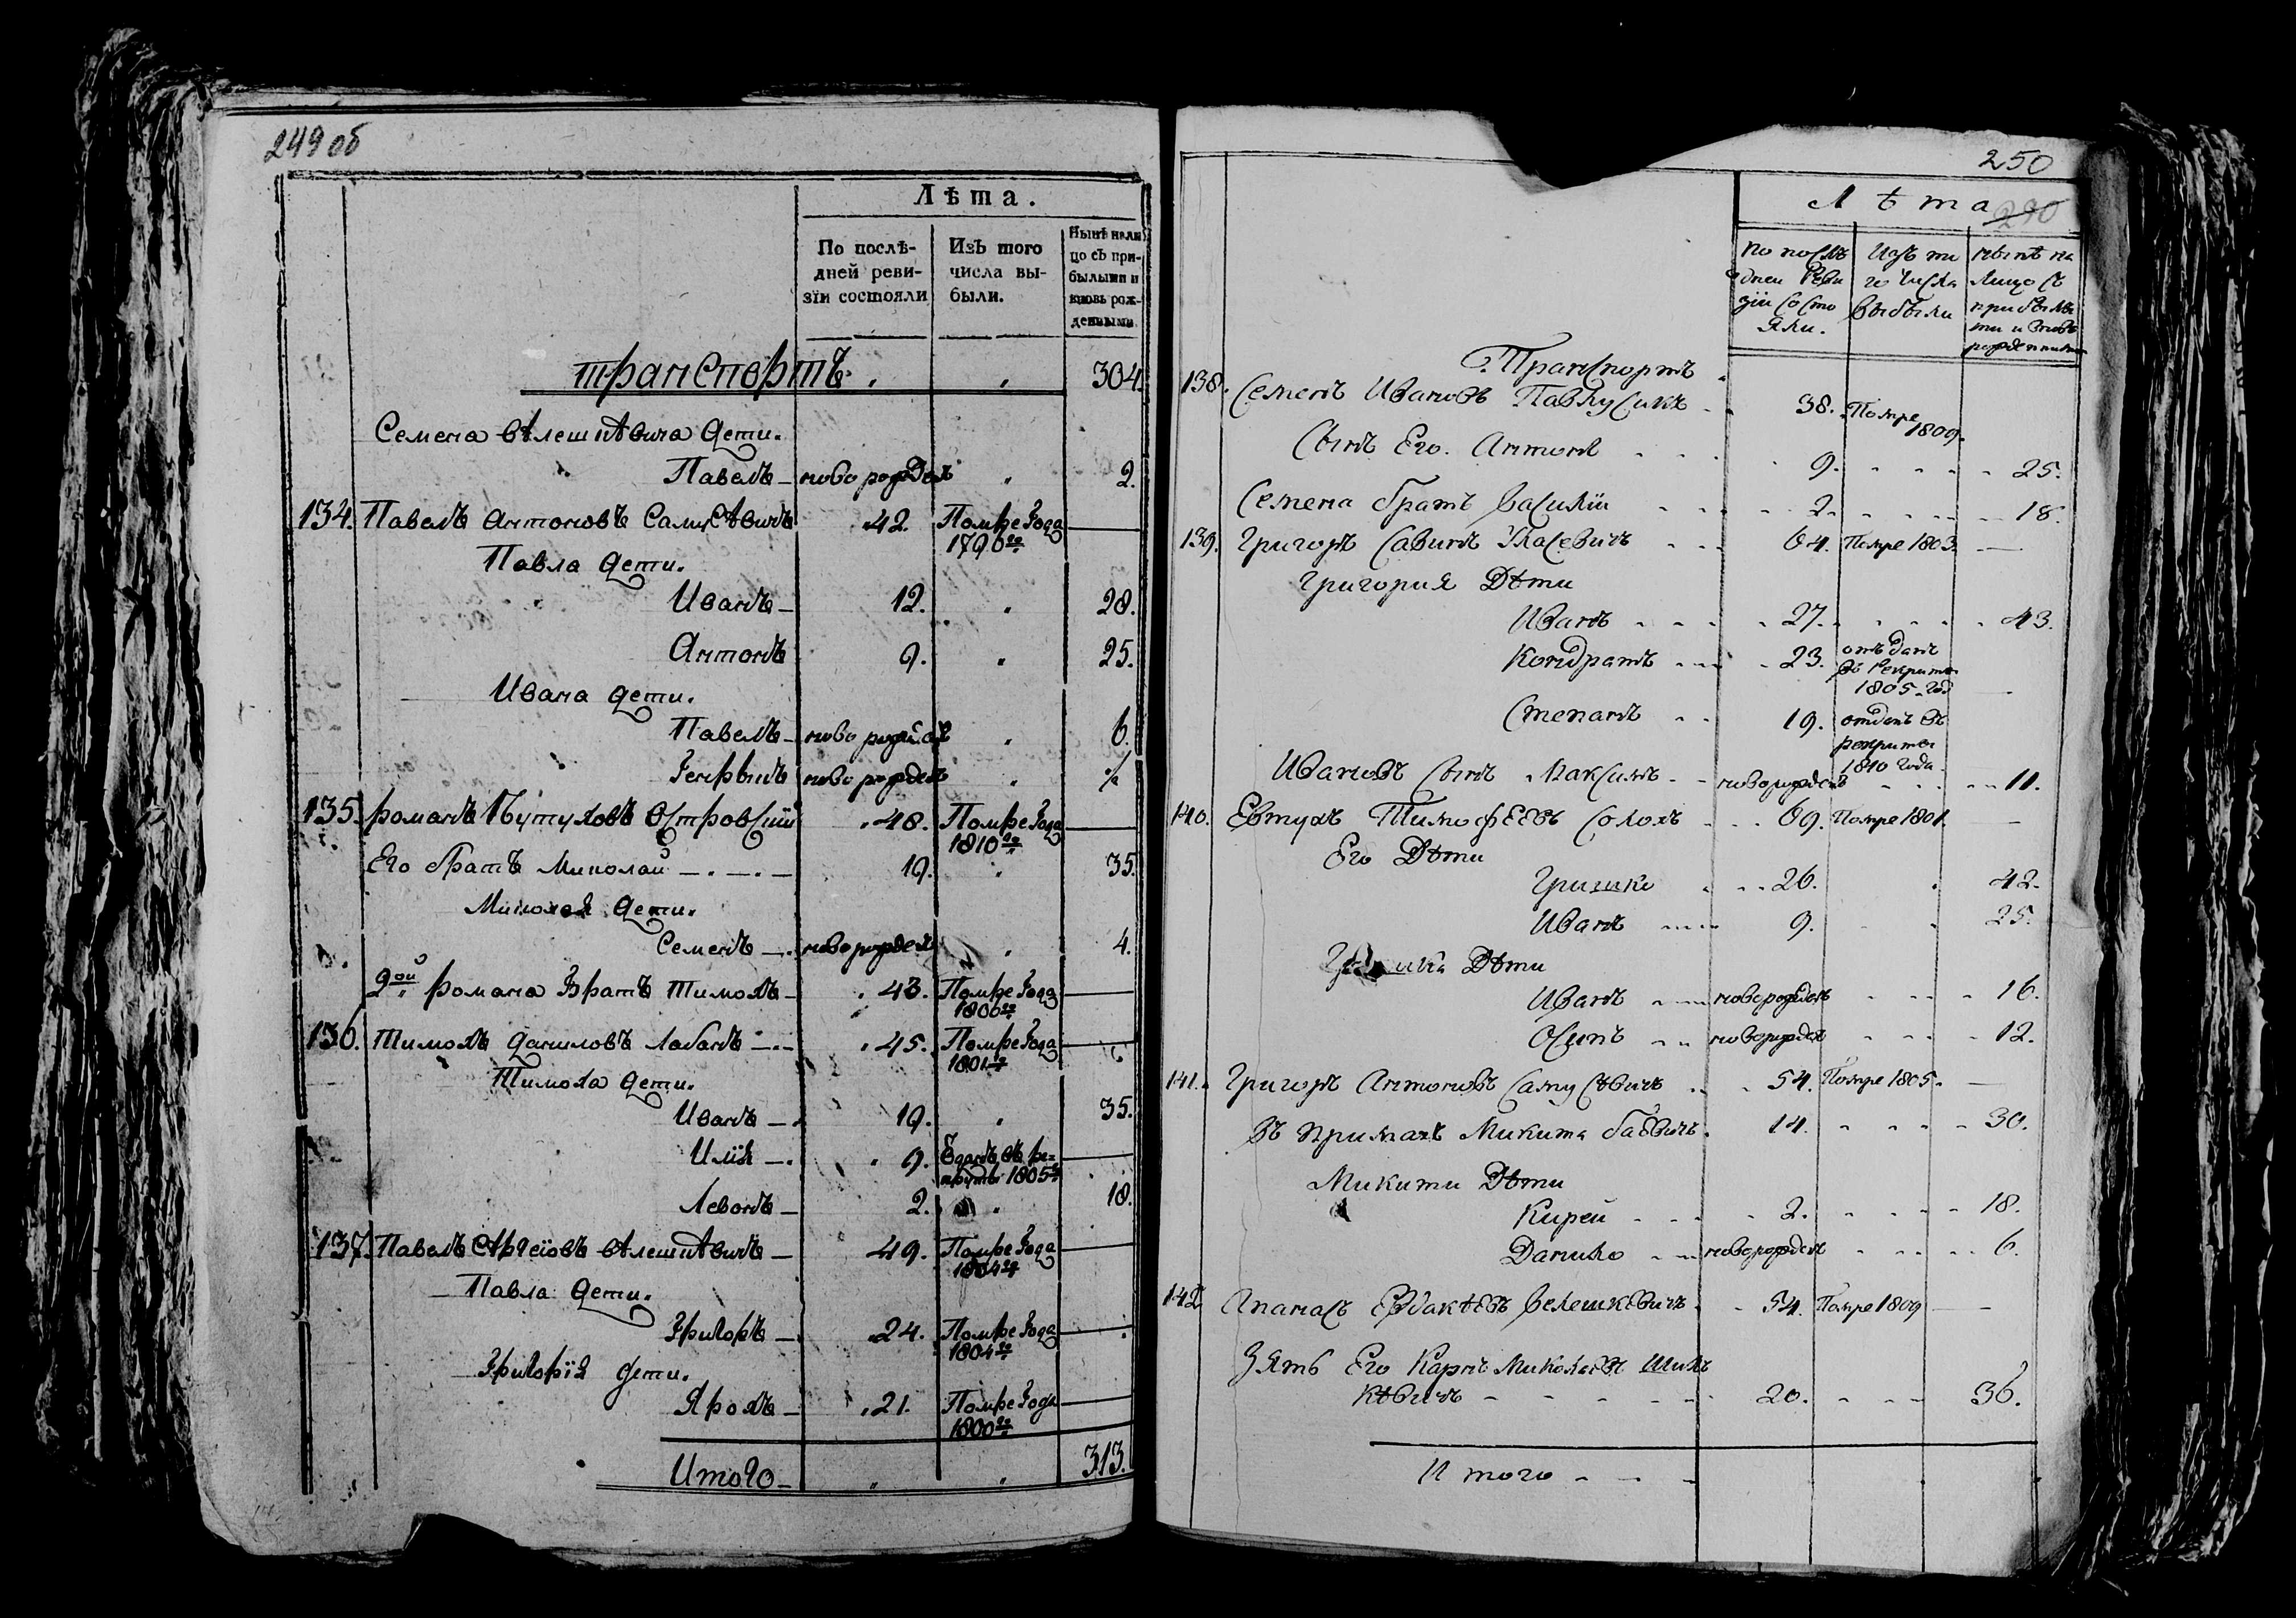 249 об
Лѣта.
По послѣ-
дней реви-
зїи состояли
Изъ того
числа вы-
были.
Нынѣ нали
цо съ при-
былыми и
вновь рож-
денными
транспортъ 304.
Семена велешкевича дети.
Павелъ - новорожден 2.
134. Павелъ Антоновъ Самусевичъ 42. Помре Года
1796го
Павла дети.
Иванъ - 12. 28.
Антонъ 9. 25.
Ивана дети.
Павелъ - новорожден 6.
новорожден
135. Романъ Островский 48. Помре Года
1810го
Его братъ Миколай 19. 35.
Миколая дети.
Семенъ новорожден 4.
2ой Романа Братъ Тимохъ - 43. Помре Года
1806го
136. Тимохъ даниловъ лабанъ 45. Помре Года
1801го
Тимоха дети.
Иванъ - 19. 35.
Илїя - 9. Едатъ въ ре-
круты 1805г
Левонъ - 2. 18.
137. Павелъ велешкевичъ - 49. Помре Года
1804го
Павла дети.
Григоръ - 24. Помре Года
1804го
Григорїя дети.
Ярохъ - 21. Помре Года
1800го
Итого - 313.
250
290
Лѣта
По послѣ
дней Реви
зїи состо
яли.
Изъ то
го числа
выбыли
нынѣ на
лицо съ
прибылы
ми и вновь
рожденными
Транспортъ
138. Семенъ Ивановъ Павлусикъ 38. Помре
1809.
Сынъ Его Антонъ 9. 25.
Семена братъ Василїй 2. 18.
139. Григоръ Савинъ 64. Помре 1803.
Григория Дѣти
Иванъ 27. 43.
Кондратъ 23. отъданъ
въ Рекруты
1805. год
Степанъ 19. отданъ въ
рекруты
1810 года
Ивановъ Сынъ Максимъ - новорожденъ 11.
140. Евтухъ Тимофеевъ Солохъ 69. Помре 1801.
Его Дѣти
Гришко 26. 42.
Иванъ 9. 25.
Дѣти
Иванъ новорожден 16.
Осипъ новорожден 12.
141. Григоръ Антоновъ Самусевичъ 54. Помре 1805.
въ примахъ Микита 14. 30.
Микити Дѣти
Кирей 2. 18.
Данило новорожден 6.
142 Апанасъ Велешкевичъ 54. Помре 1809
Зять Его Карпъ Миколаевъ
кевичъ 20. 36.
Итого